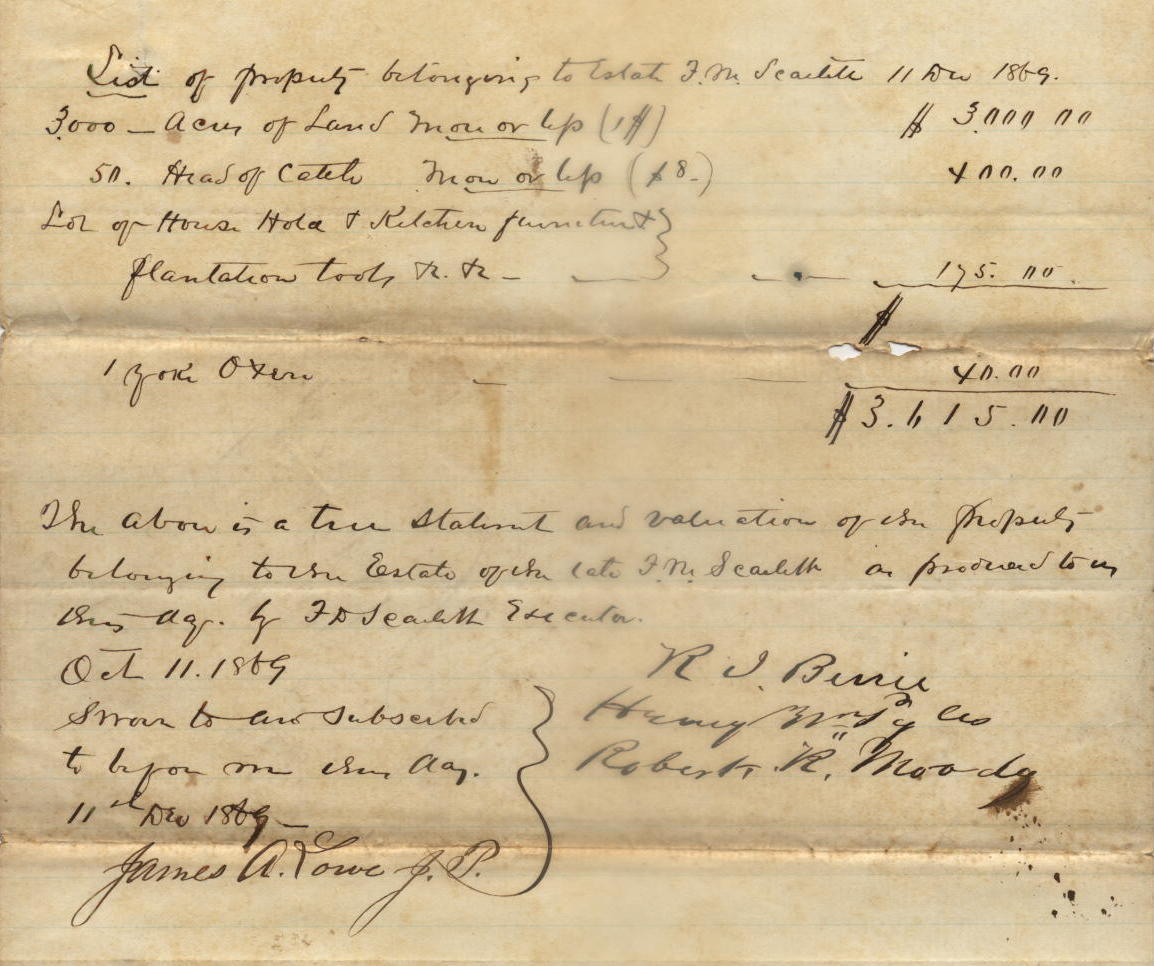 List of property belonging to Estate F. M. Scarlett 11 Dec 1869.
3000 — Acres of Land More or less (1$) $ 3000 00
50. Head of Cattle More or less ($8-) 400.00
Lot of House Hold & Kitchen furniture &
plantation tools &c. &c — 175.00
$
1 yoke Oxen — — — 40.00
$3.615.00
The above is a true statement and valuation of the property
belonging to the Estate of the late F. M. Scarlett as produced to us
this day. by F D Scarlett Executor.
Oct 11. 1869
R. J. Berrie
Sworn to and subscribed
to before me this day.
11th Dec 1869 —
Robert. R. Moody
James A. Lowe J. P.